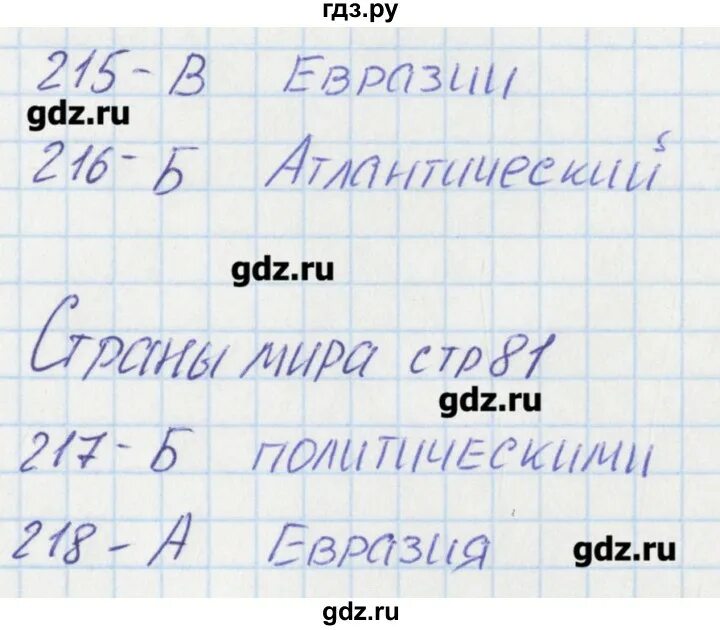 гдз.ру
215-В Евразии
gdz.ru
216-Б Атлантический
gdz.ru
Страны мира стр 81
gdz.ru
217-Б политическими
218-А Евразия
gdz.ru
gdz.ru